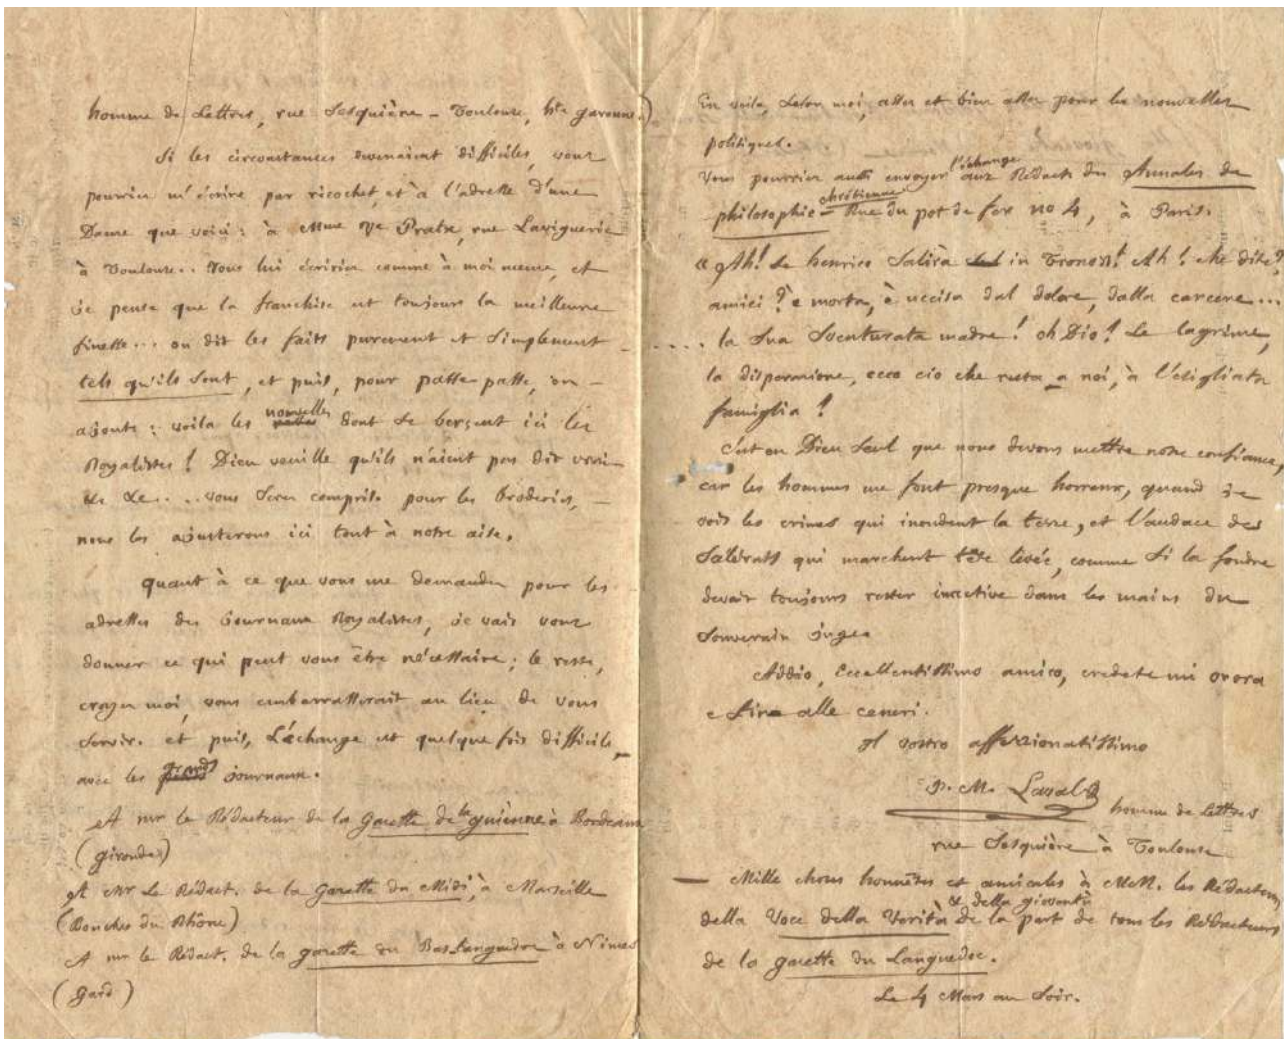 homme de Lettres, rue Sesquière – Toulouse, hte garonne.)
Si les circonstances devenaient difficiles, vous
pourriez m'écrire par ricochet, et à l'adresse d'une
Dame que voici : à Mme Ve Pratx, rue Laviguerie
à Toulouse.. Vous lui écririez comme à moi même, et
je pense que la franchise est toujours la meilleure
finesse... on dit les faits purement et simplement
tels qu'ils sont, et puis, pour passe-passe, on –
ajoute : voilà les nouvelles dont se berçent ici les
Royalistes ! Dieu veuille qu'ils n'aient pas dit vrai
&c &c.... vous serez compris. pour les broderies, –
nous les ajusterons ici tout à notre aise.
quant à ce que vous me demandez pour les
adresses des Journaux Royalistes, je vais vous
donner ce qui peut vous être nécessaire ; le reste,
croyez moi, vous embarrasserait au lieu de vous
servir. et puis, L'échange est quelque fois difficile,
avec les grands journaux.
A mr le Rédacteur de la gazette de la guienne à Bordeaux
(gironde)
A Mr Le Rédact. de la gazette du Midi, à Marseille
(Bouches du Rhône)
A mr le Rédact. de la gazette du Bas Languedoc à Nimes
(gard)
En voilà, selon moi, assez et bien assez pour les nouvelles
politiques.
Vous pourriez aussi envoyer l'échange aux Rédacts des Annales de
philosophie chrétienne – Rue du pot de fer no 4, à Paris.
« Ah! Se henrico Salirà in Trono!! Ah ! che dite?
amici ? è morta, è uccisa dal dolore, dalla carcere...
.... la Sua Sventurata madre ! oh Dio ! Le lagrime,
la disperazione, ecco cio che resta a noi, à l'esigliata
famiglia !
C'est en Dieu seul que nous devons mettre notre confiance,
car les hommes me font presque horreur, quand je
vois les crimes qui inondent la terre, et l'audace des
scélérats qui marchent tête levée, comme si la foudre
devait toujours rester inactive dans les mains du
Souverain juge.
Addio, Eccellentissimo amico, credete mi or ora
e fin alle ceneri.
Il vostro affezionatissimo
P. M. Lasalz
homme de Lettres
rue Sesquière à Toulouse
– Mille choses honnêtes et amicales à MM. les Rédacteurs
della Voce della Verità & della gioventù de la part de tous les Rédacteurs
de la gazette du Languedoc.
Le 4 Mars au Soir.